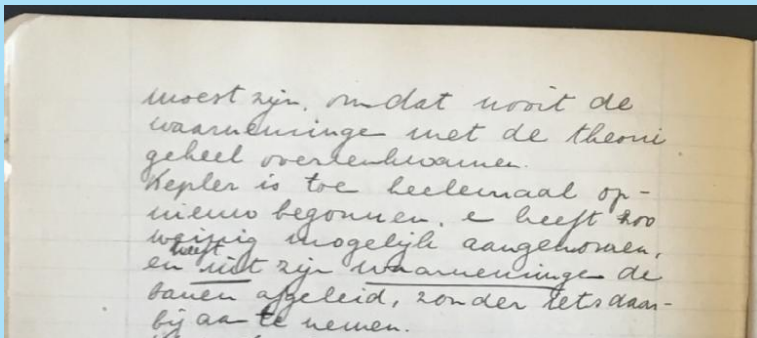 moest zijn, omdat nooit de
waarneminge met de theorie
geheel overeenkwamen.
Kepler is toe heelemaal op-
nieuw begonnen, e heeft zoo
weinig mogelijk aangenomen,
heeft
en uit zijn waarneminge de
banen afgeleid, zonder iets daar-
bij aa te nemen.